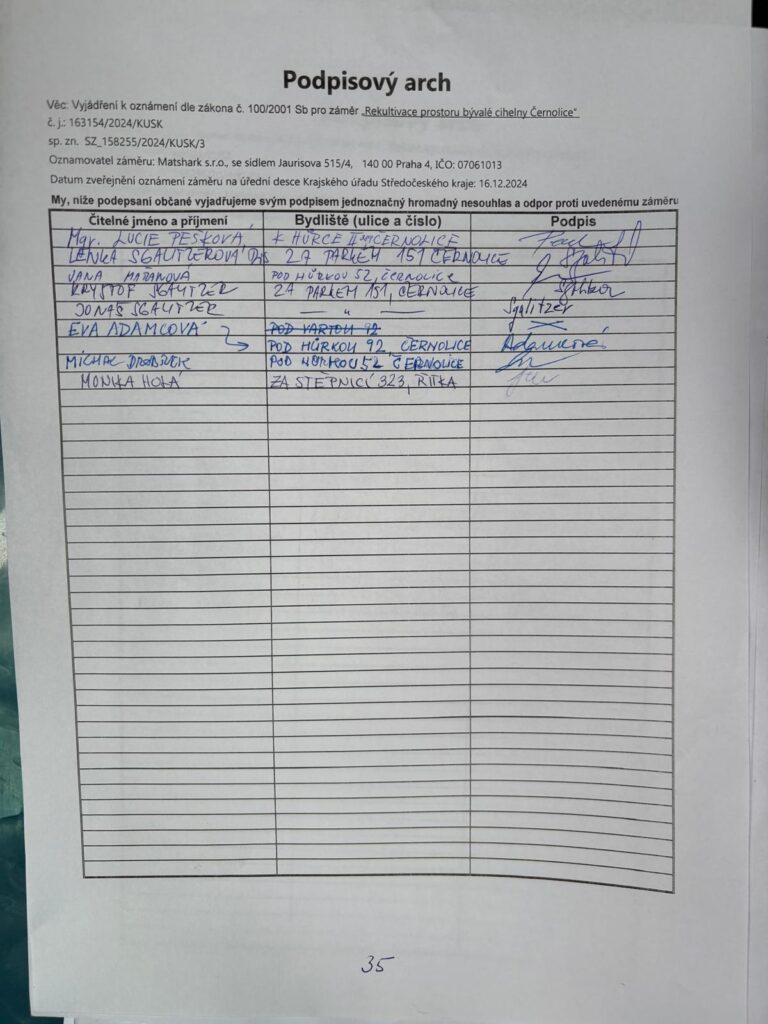 Podpisový arch
Věc: Vyjádření k oznámení dle zákona č. 100/2001 Sb pro záměr „Rekultivace prostoru bývalé cihelny Černolice"
č. j.: 163154/2024/KUSK
sp. zn. SZ_158255/2024/KUSK/3
Oznamovatel záměru: Matshark s.r.o., se sídlem Jaurisova 515/4, 140 00 Praha 4, IČO: 07061013
Datum zveřejnění oznámení záměru na úřední desce Krajského úřadu Středočeského kraje: 16.12.2024
My, níže podepsaní občané vyjadřujeme svým podpisem jednoznačný hromadný nesouhlas a odpor proti uvedenému záměru
Čitelné jméno a příjmení Bydliště (ulice a číslo) Podpis
Mgr. LUCIE PEŠKOVÁ, K HŮRCE ČERNOLICE
LENKA SGALITZEROVÁ ZA PARKEM 151 ČERNOLICE
JANA MAŘANOVÁ POD HŮRKOU 52, ČERNOLICE
KRYŠTOF SGALITZER ZA PARKEM 151, ČERNOLICE
JONÁŠ SGALITZER — " — Sgalitzer
EVA ADAMCOVÁ POD 92
POD HŮRKOU 92, ČERNOLICE Adamcová
MICHAL POD HŮRKOU 52 ČERNOLICE
MONIKA HOLÁ ZA ŠTĚPNICÍ 323, ŘITKA
35